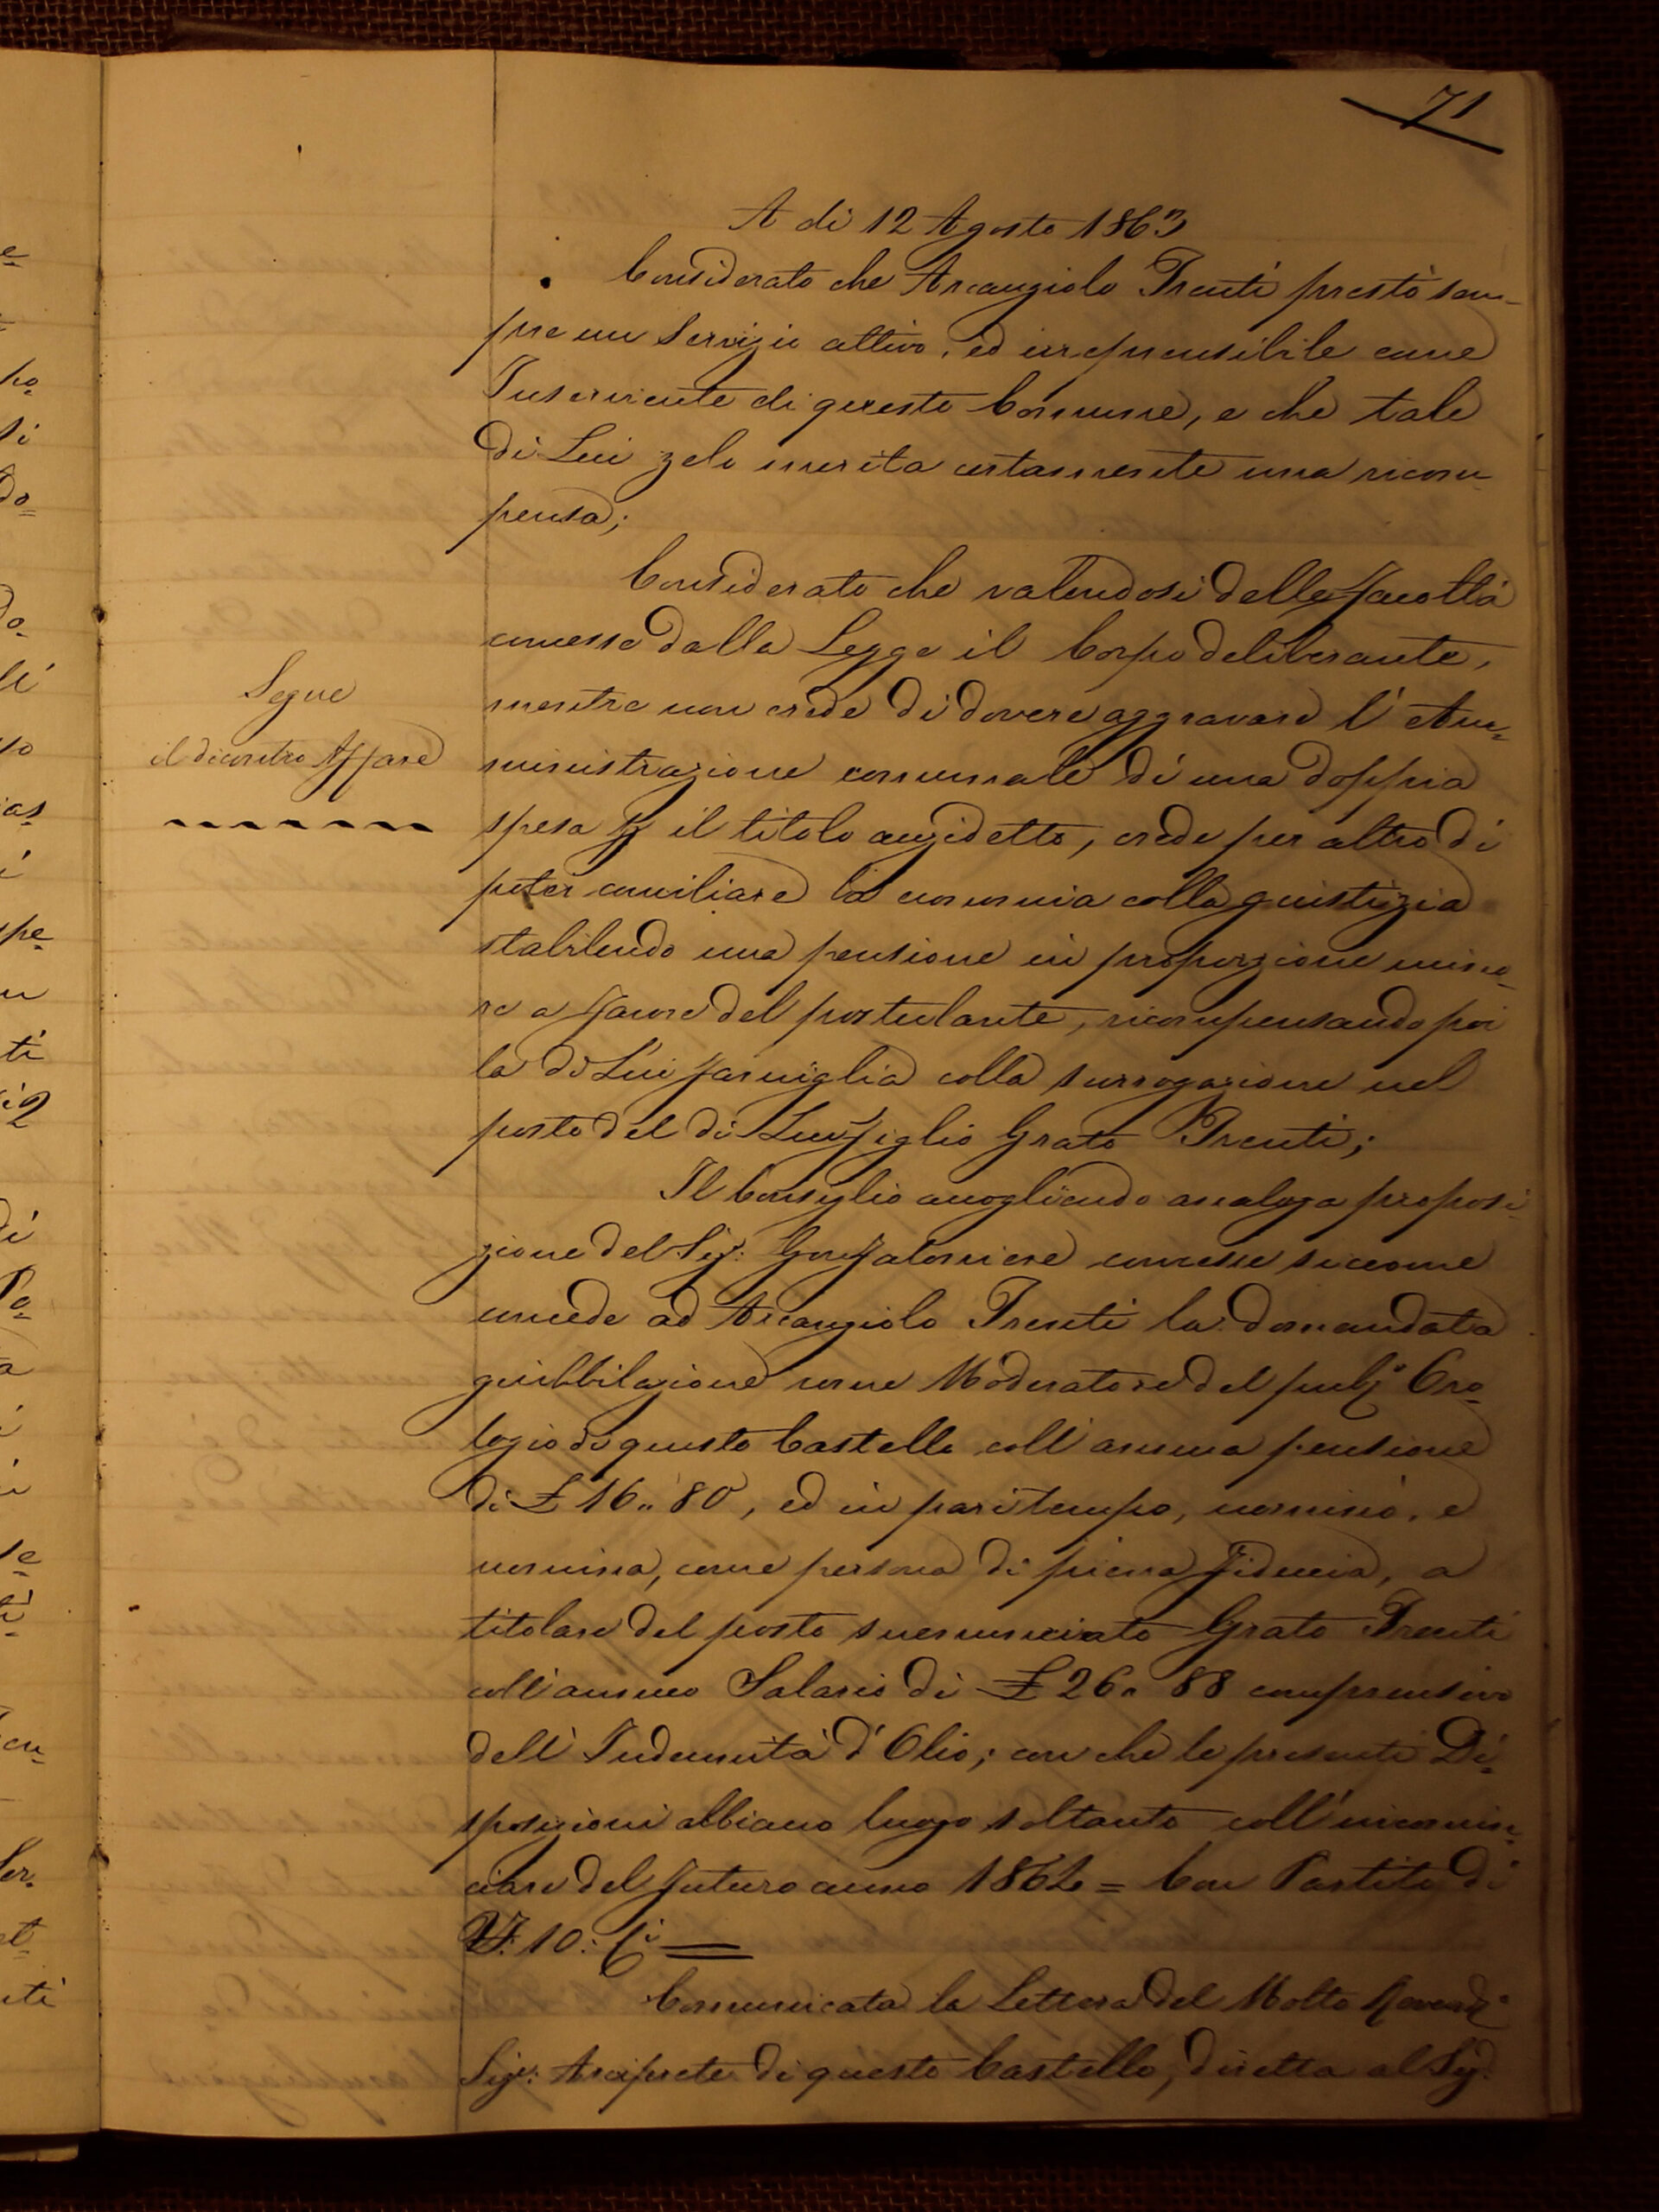 71
A di 12 Agosto 1863
Considerato che Arcangiolo Trenti prestò sem-
pre un Servizio attivo, ed irreprensibile come
Inserviente di questo Comune, e che tale
di Lui zelo merita certamente una ricom-
pensa;
Considerato che valendosi delle facoltà
concesse dalla Legge il Corpo deliberante,
mentre non crede di dovere aggravare l'Am-
ministrazione comunale di una doppia
Segue
il dicontro Affare
spesa p il titolo anzidetto, crede per altro di
poter conciliare la economia colla giustizia
stabilendo una pensione in proporzione mino-
re a favore del postulante, ricompensando poi
la di Lui famiglia colla surrogazione nel
posto del di Lui figlio Grato Trenti;
Il Consiglio accogliendo analoga proposi-
zione del Sig.r Gonfaloniere concesse siccome
concede ad Arcangiolo Trenti la domandata
giubbilazione come Moderatore del pubco Oro-
logio di questo Castello coll'annua pensione
di £ 16.. 80, ed in pari tempo, nominò, e
nomina, come persona di piena fiducia, a
titolare del posto suenunciato Grato Trenti
coll'annuo Salario di £ 26.. 88 comprensivo
dell'Indennità d'Olio; con che le presenti Di-
sposizioni abbiano luogo soltanto coll'incomin-
ciare del futuro anno 1864 = Con Partito di
VF. 10: Ci =
Comunicata la Lettera del Molto Revendo
Sigr. Arciprete di questo Castello, diretta al Sig.